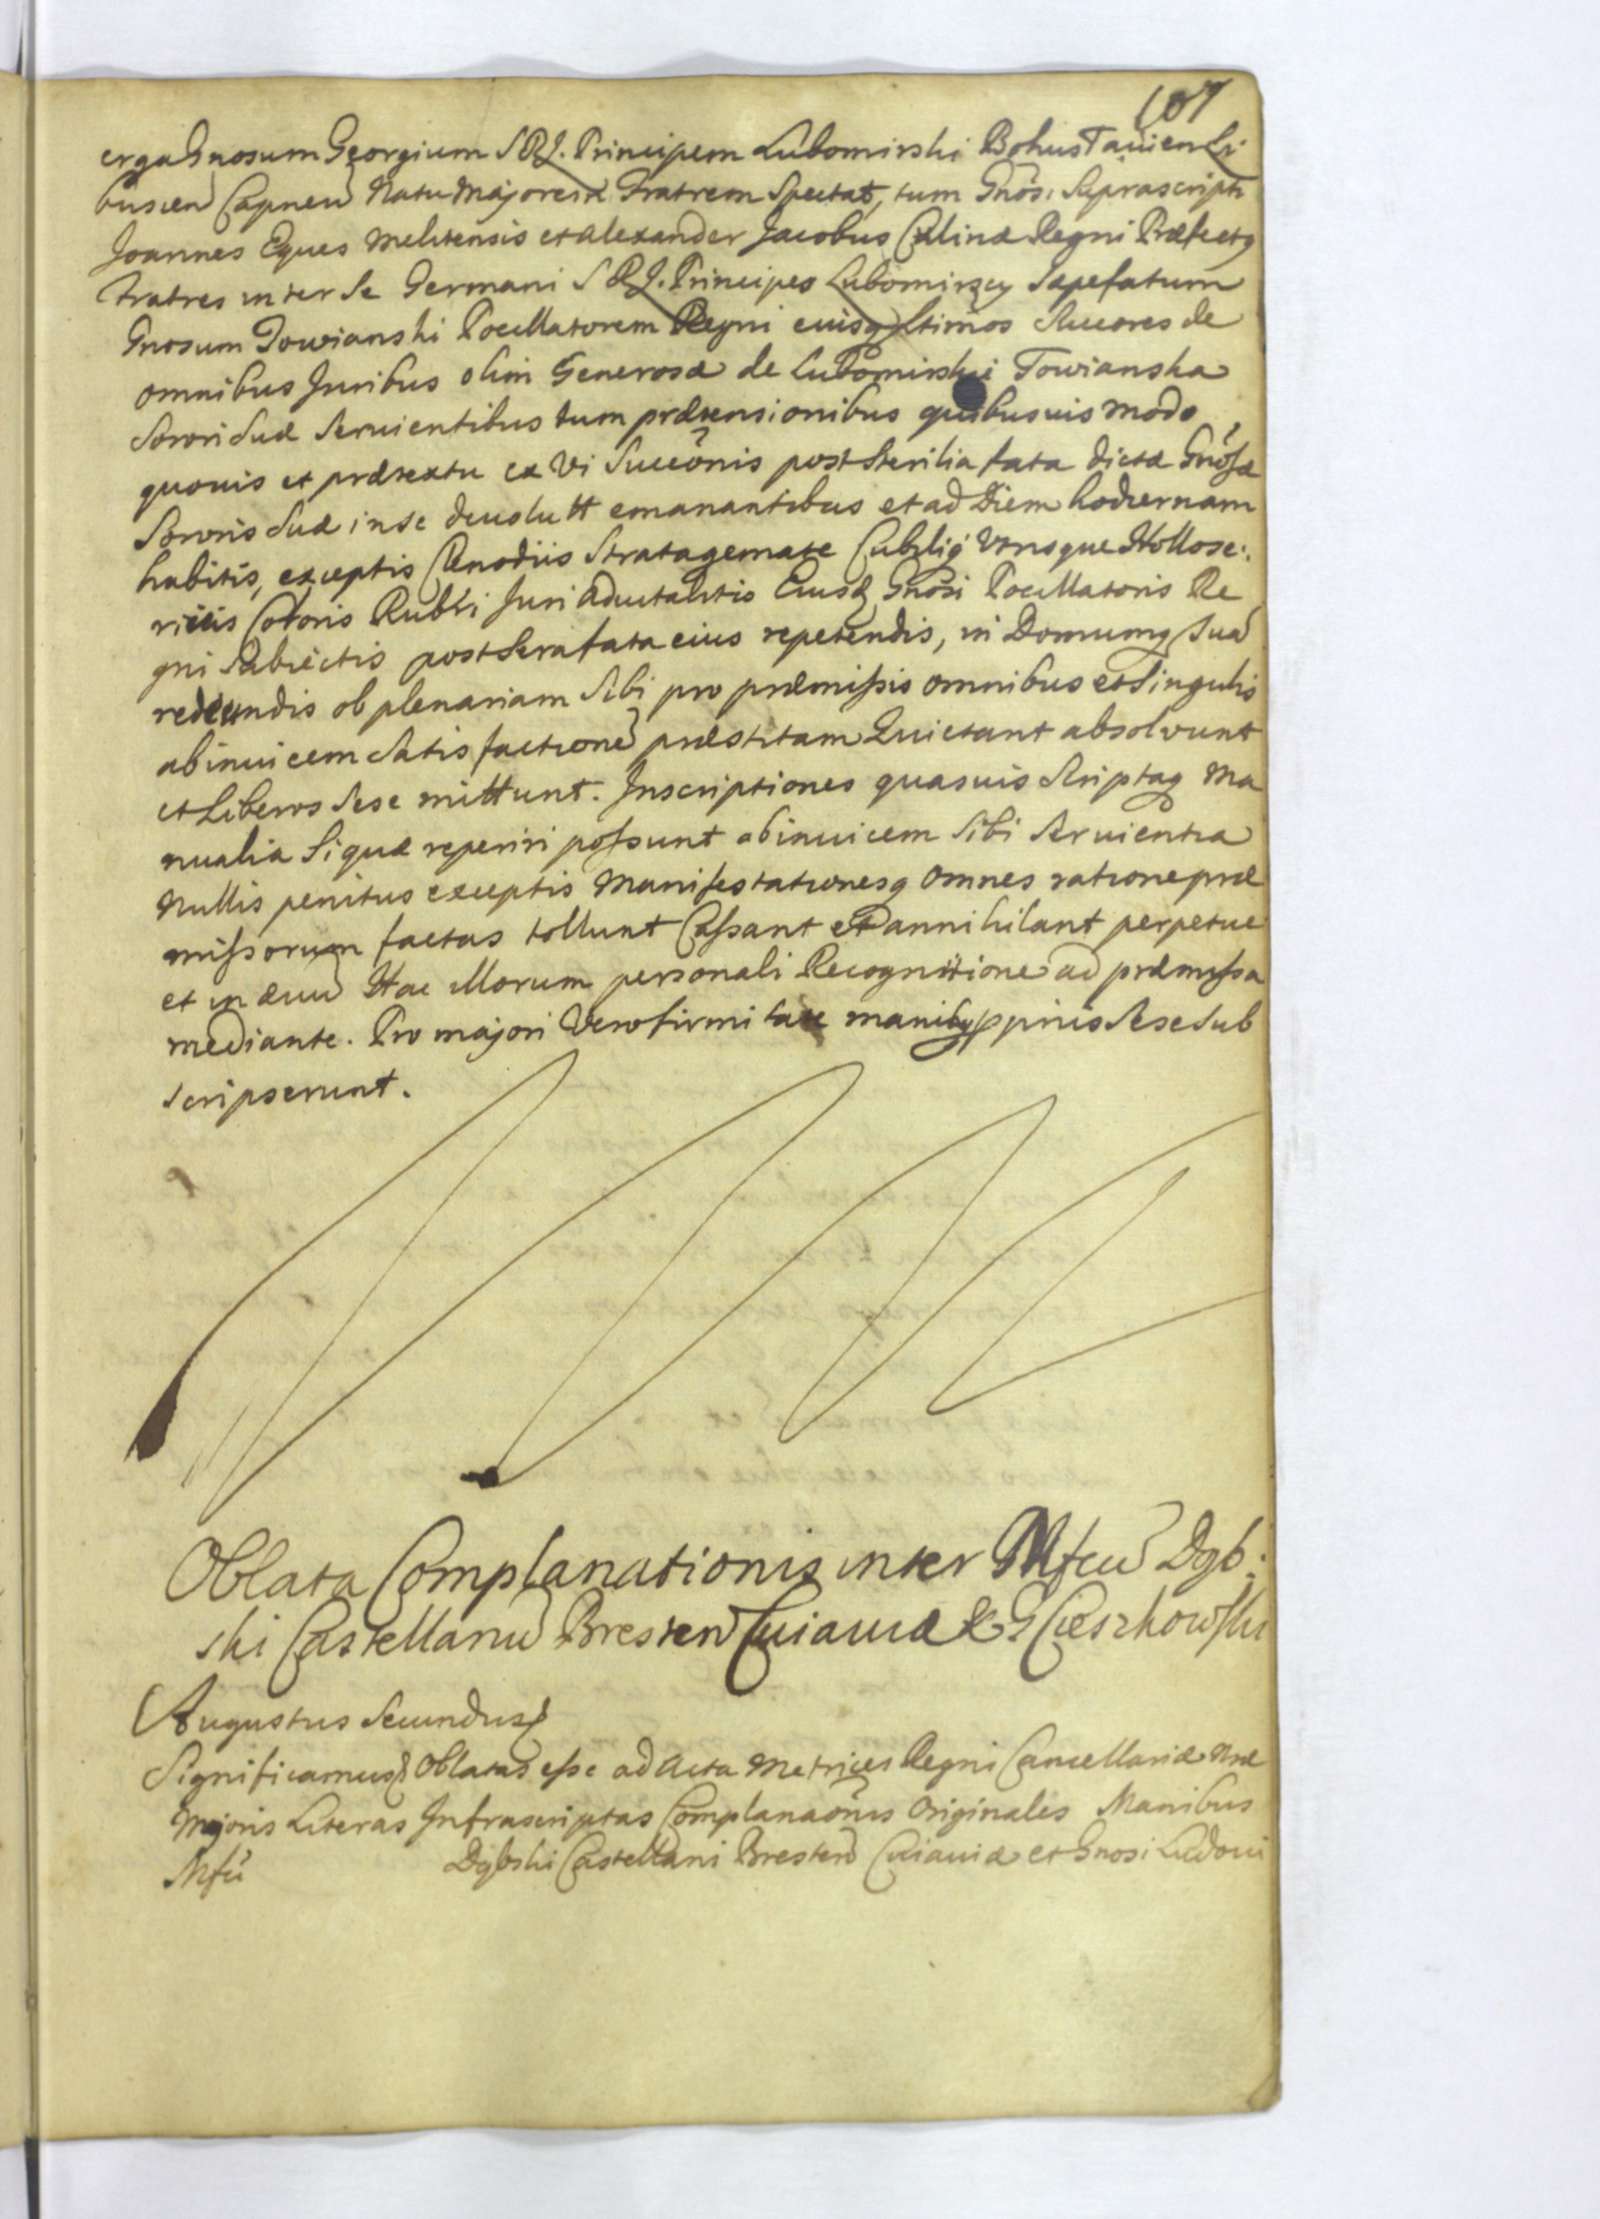 107
erga Gnosum Georgium S R J. Principem Lubomirski Bohus Tauien Li
busien Capneu Natu Majorem Fratrem Spectat, tum Gnosi Suprascripti
Joannes Eques Melitensis et Alexander Jacobus Culinæ Regni Præfectq
Fratres inter Se Germani S R J. Principes Lubomirscy Sæpefatum
Gnosum Towianski Pocillatorem Regni eiusq ltimos Succores de
omnibus Juribus olim Generosæ de Lubomirskie Towianska
Sorori Suæ Seruientibus tum prætensionibus quibusuis modo
quouis et prætextu ex Vi Succõnis post Sterilia fata dictæ Gnosæ
Sororis Suæ in se deuolutt emanantibus et ad Diem hodiernam
habitis, exceptis Clenodiis Stratagemate Cubilig Vtrisque Hollose:
riciis Coloris Rubri Juri aduitalitis Eiusd Gnosi Pocillatoris Re
gni Subiectis post Sera fata eius repetendis, in Domumq Sua
redeundis ob plenariam Sibi pro præmissis omnibus et Singulis
abinuicem Satisfactione præstitam Quietant absolvunt
et Liberos Sese mittunt. Inscriptiones quasuis Scriptaq Ma
nualia Si quæ reperiri possunt abinuicem Sibi Seruientia
Nullis penitus exceptis Manifestationesq omnes ratione præ
missorum factas tollunt Cassant et annihilant perpetue
et in æuu Hac Illorum personali Recognitione ad præmissa
mediante. Pro majori Vero firmitate manibq ppriis Sese Sub
scripserunt.
Oblata Complanationis inter Mfcu Dąb:
ski Castellanu Bresten Cuiauiæ & G Cieszkowski
Augustus Secundus
Significamus Oblatas esse ad Acta Metrices Regni Cancellariæ Nræ
Majoris Literas Infrascriptas Complanaõnis Originales Manibus
Mfci Dąbski Castellani Bresten Cuiauiæ et Gnosi Ludoui